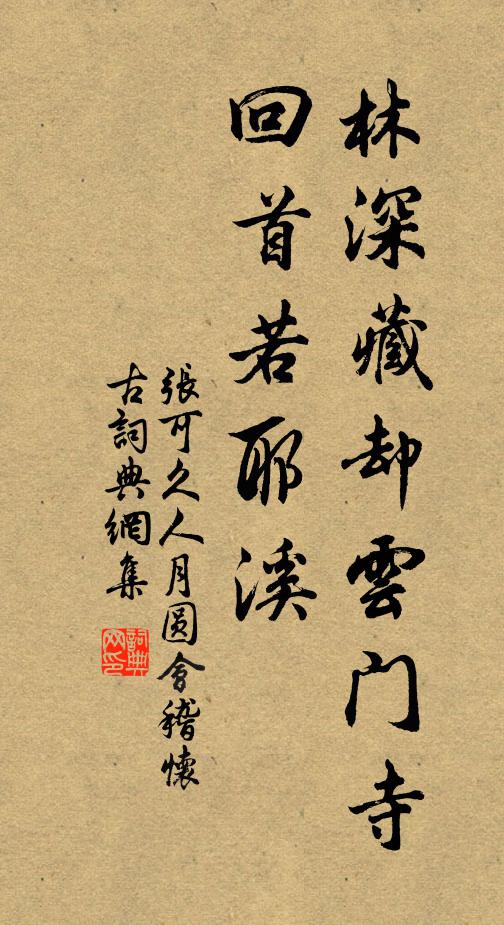 林深藏却雲门寺
回首若耶溪
張可久人月圆會稽懷
古詞典網集
詞典网印